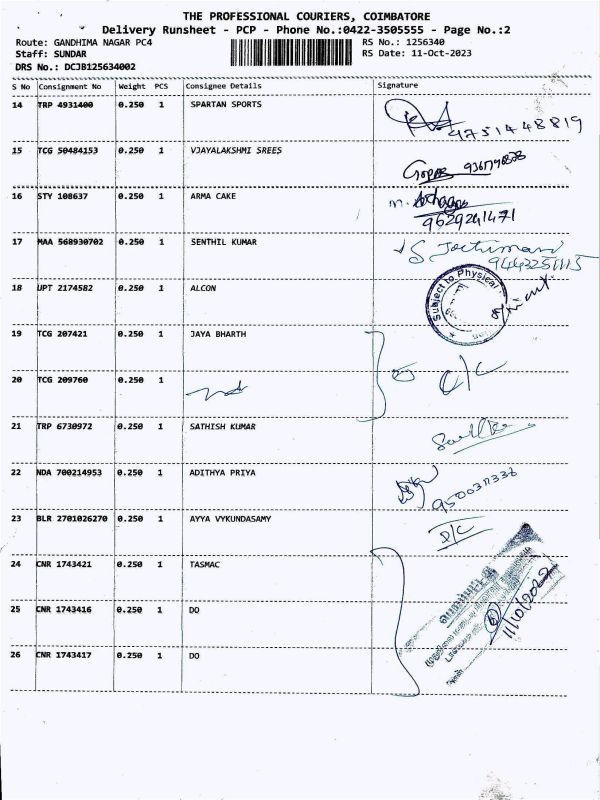 THE PROFESSIONAL COURIERS, COIMBATORE
Delivery Runsheet - PCP - Phone No.:0422-3505555 - Page No.:2
Route: GANDHIMA NAGAR PC4 RS No.: 1256340
Staff: SUNDAR RS Date: 11-Oct-2023
DRS No.: DCJB125634002
S No Consignment No Weight PCS Consignee Details Signature
14 TRP 4931400 0.250 1 SPARTAN SPORTS
9751448819
15 TCG 50484153 0.250 1 VJAYALAKSHMI SREES
16 STY 108637 0.250 1 ARMA CAKE
9629241471
17 MAA 568930702 0.250 1 SENTHIL KUMAR
18 UPT 2174582 0.250 1 ALCON
Subject to Physical
19 TCG 207421 0.250 1 JAYA BHARTH
20 TCG 209760 0.250 1
21 TRP 6730972 0.250 1 SATHISH KUMAR
22 NDA 700214953 0.250 1 ADITHYA PRIYA
23 BLR 2701026270 0.250 1 AYYA VYKUNDASAMY
D/C
24 CNR 1743421 0.250 1 TASMAC
25 CNR 1743416 0.250 1 DO
11/10/2023
26 CNR 1743417 0.250 1 DO